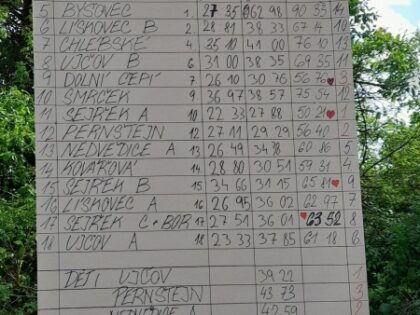 5 BYŠOVEC 1. 27 35 62 98 90 33 14
6 LÍSKOVEC B 2. 28 81 38 33 67 14 10
7 CHLÉBSKÉ 4 35 10 41 00 76 10 13
8 UJČOV B 6 31 00 38 35 69 35 11
9 DOLNÍ ČEPÍ 7 26 10 30 76 56 76 ♥ 3
10 SMRČEK 9 36 97 38 57 75 54 12
11 SEJŘEK A 10 22 33 27 88 50 21 ♥ 1
12 PERNŠTEJN 12 27 11 29 29 56 40 2
13 NEDVĚDICE A 13 26 49 34 78 60 86 5
14 KOVÁŘOVÁ 14 28 80 30 51 59 31 4
15 SEJŘEK B 15 34 66 31 15 65 81 ♥ 9
16 LÍSKOVEC A 16 26 95 36 02 62 97 7
17 SEJŘEK C + BOR 17 27 51 36 01 ♥ 63 52 8
18 UJČOV A 18 23 33 37 85 61 18 6
DĚTI UJČOV 39 22 1
PERNŠTEJN 43 73 3
NEDVĚDICE A 42 59 2